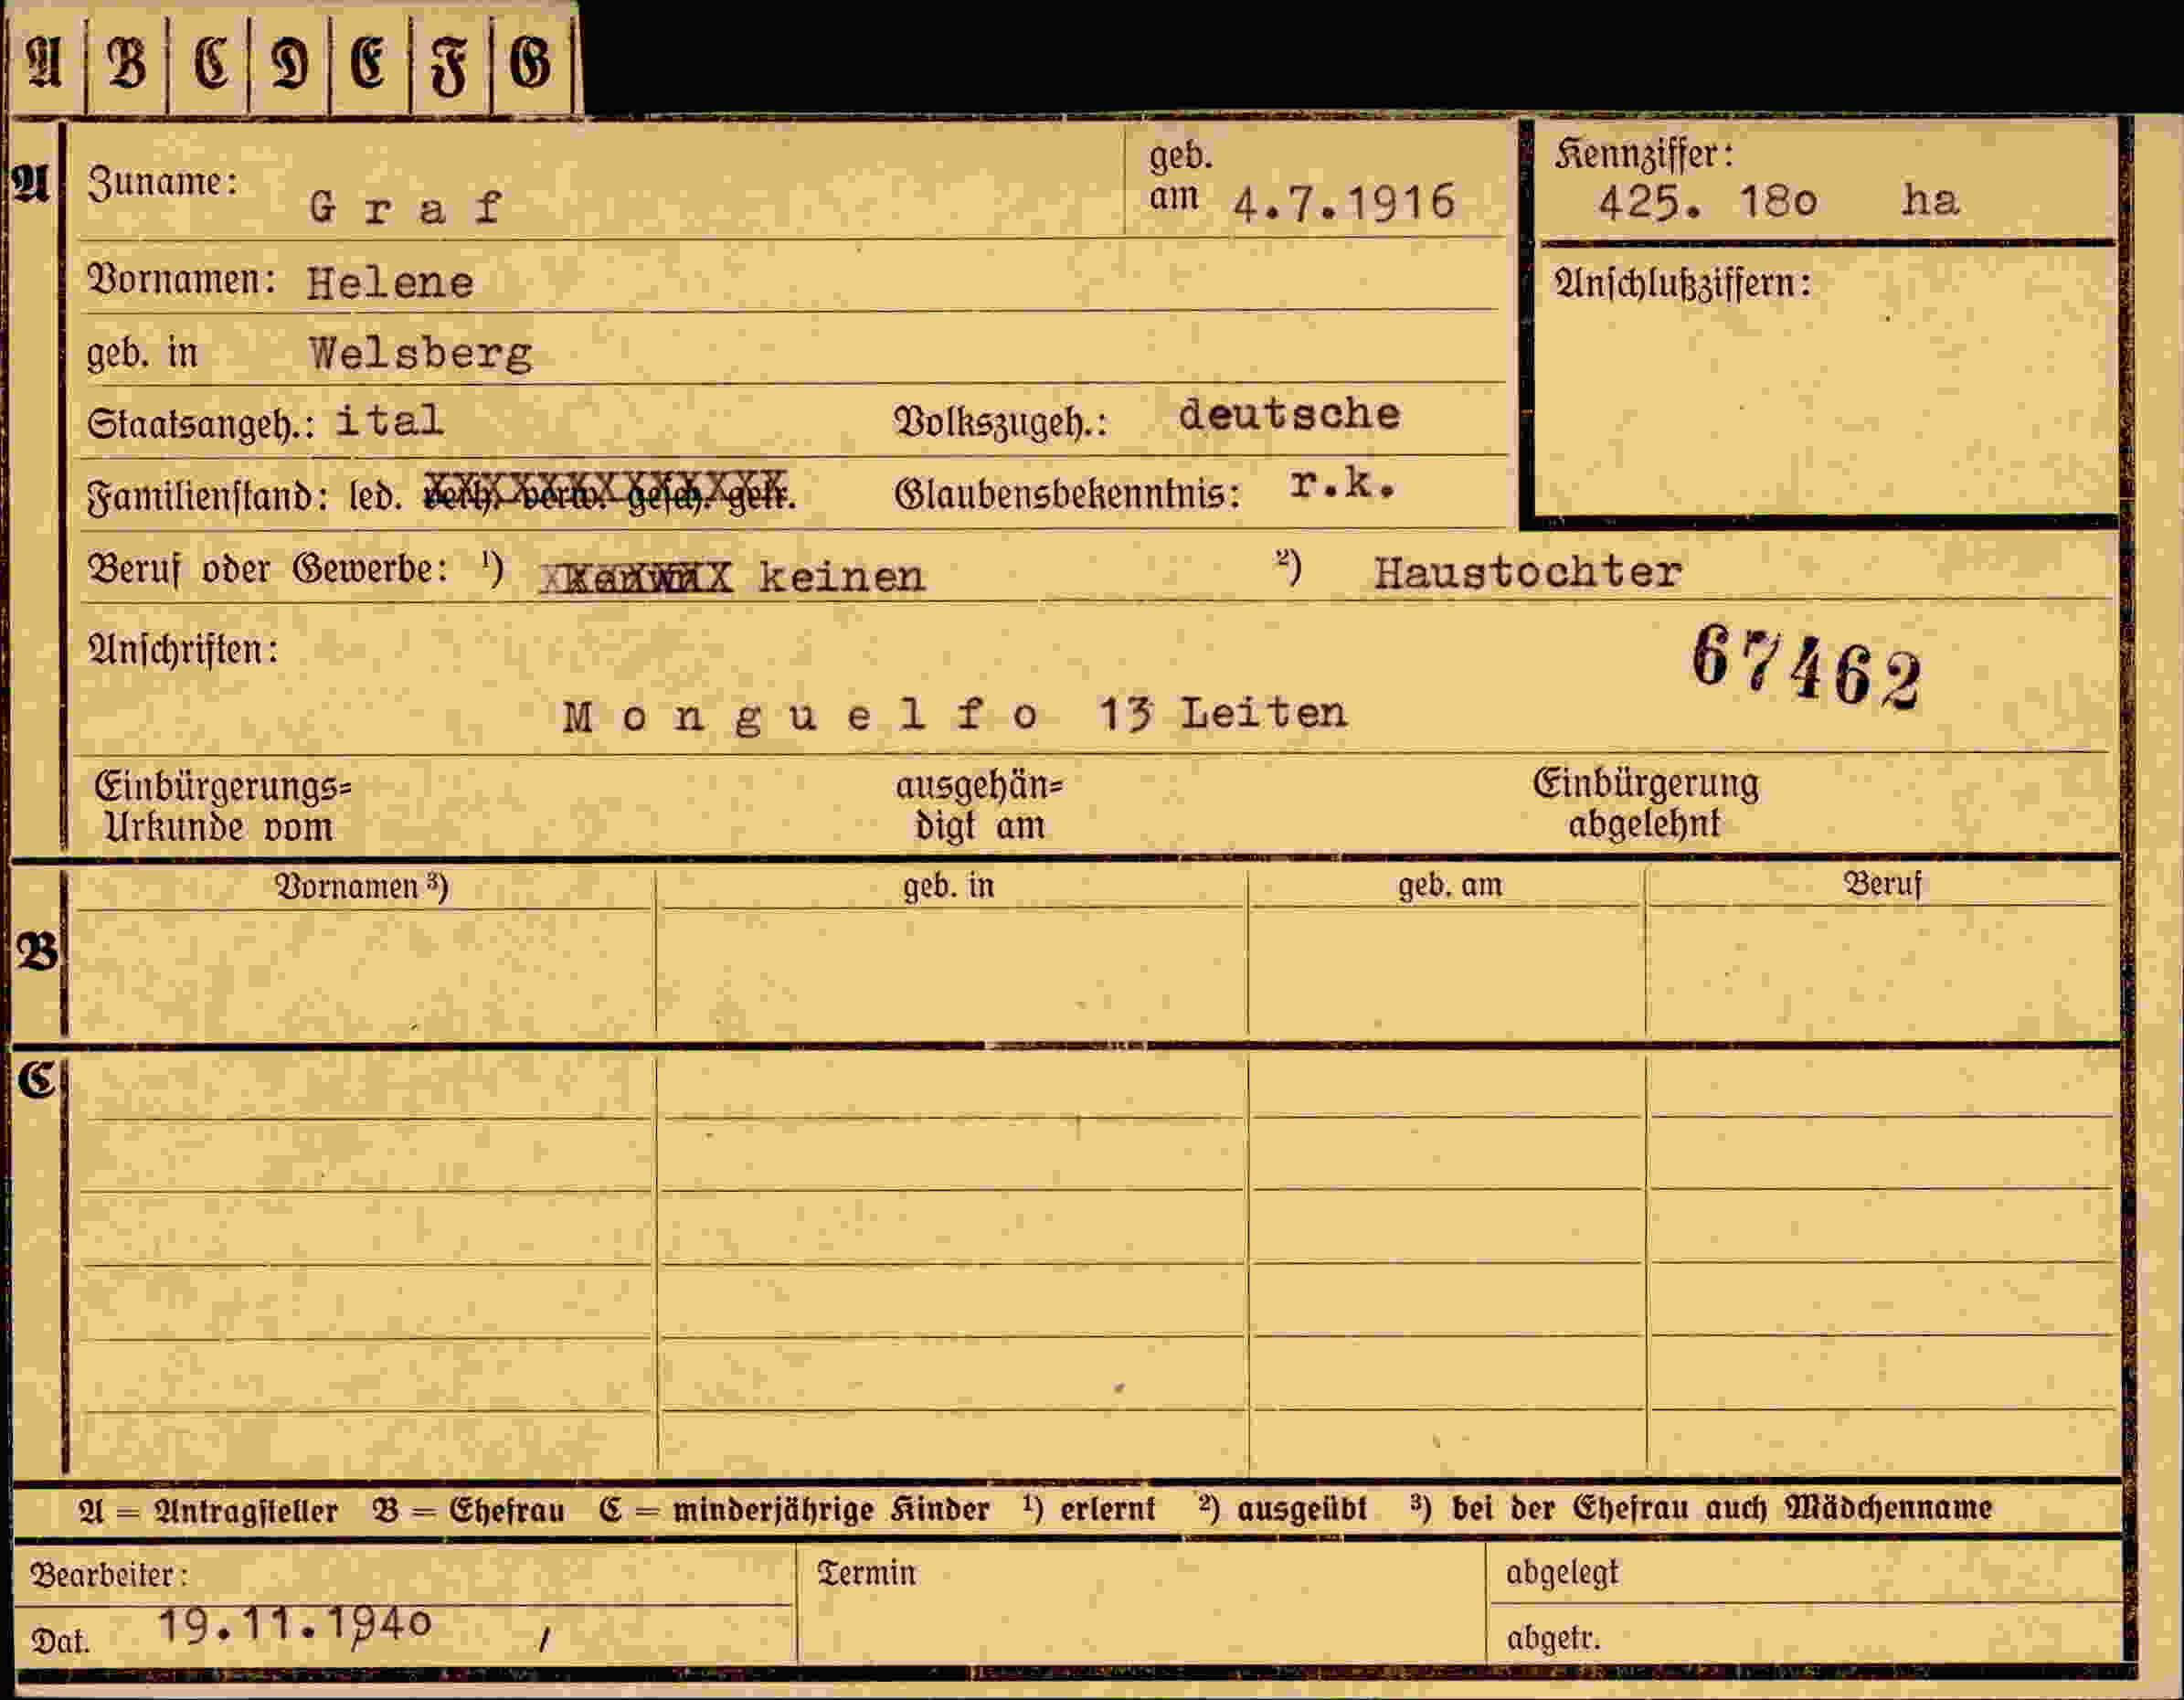 A B C D E F G
A
Zuname: Graf
geb. am 4.7.1916
Kennziffer:
425. 18o ha
Vornamen: Helene
Anschlußziffern:
geb. in Welsberg
Staatsangeh.: ital Volkszugeh.: deutsche
Familienstand: led. verh. verw. gesch. getr. Glaubensbekenntnis: r.k.
Beruf oder Gewerbe: ¹) keinen ²) Haustochter
Anschriften:
67462
Monguelfo 13 Leiten
Einbürgerungs= ausgehän= Einbürgerung
Urkunde vom digt am abgelehnt
B
Vornamen ³) geb. in geb. am Beruf
C
A = Antragsteller B = Ehefrau C = minderjährige Kinder ¹) erlernt ²) ausgeübt ³) bei der Ehefrau auch Mädchenname
Bearbeiter: Termin abgelegt
Dat. 19.11.194o / abgetr.